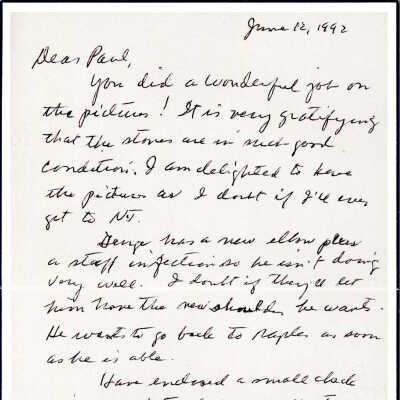 June 12, 1992
Dear Paul,
You did a wonderful job on
the pictures! It is very gratifying
that the stones are in such good
condition. I am delighted to have
the pictures as I doubt if I'll ever
get to NY.
has a new elbow plus
a staff infection so he isn't doing
very well. I doubt if they'll let
him have the new shoulder he wants.
He wants to go back to Naples as soon
as he is able.
Have enclosed a small check